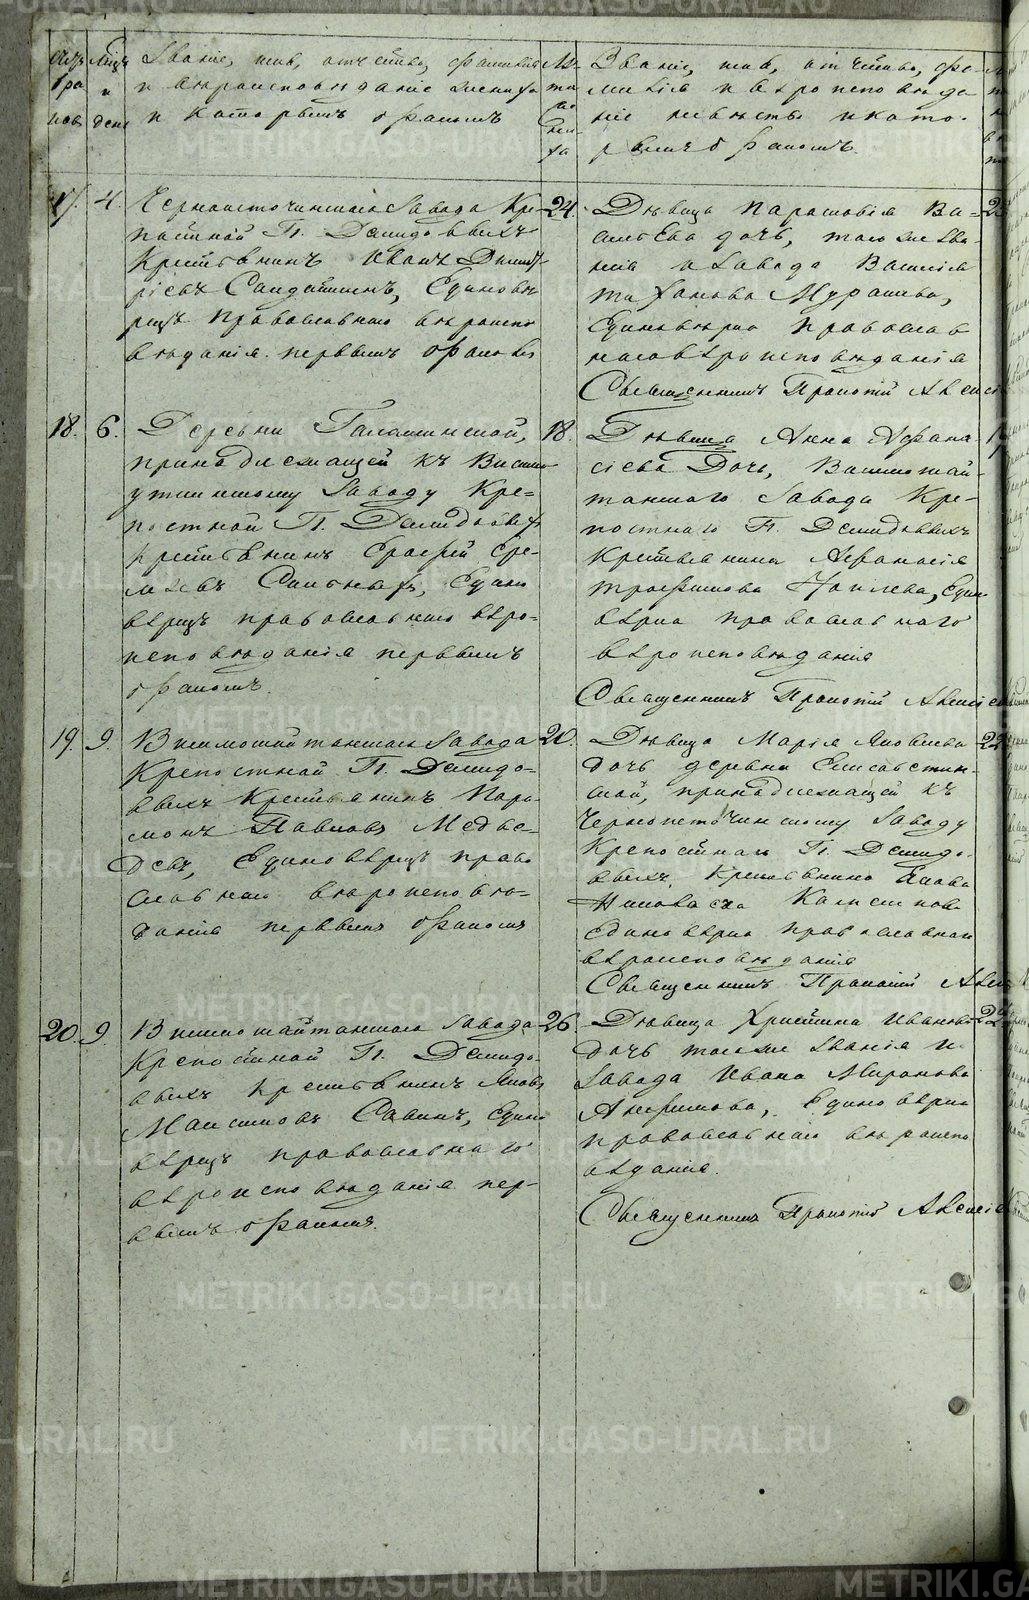 Звание, имя, отчество, фамилия
и вероисповедание жениха
и которымъ бракомъ
Звание, имя, отчество, фа-
милия и вероисповеда
ние невесты и кото-
рымъ бракомъ
17. 4. Черноисточинскаго завода Кре-
постной Гг. Демидовыхъ
Крестьянинъ Иванъ Дмит-
ріевъ Единове-
рецъ православнаго вероиспо
веданія первымъ бракомъ
24. Девица Парасковія Ва-
сильева дочь, того же зва-
нія и завода Василія
Мурашева,
Единоверка православ
наго вероисповеданія
Священникъ Прокопій Алексіе
18. 6. Деревни Галашинской,
принадлежащей къ Висимо
уткинскому заводу Кре-
постной Гг. Демидовыхъ
крестьянинъ Ерофей Ере-
меевъ Едино
верецъ православнаго веро-
исповеданія первымъ
бракомъ.
18. Девица Анна Афана-
сіева Дочь, Висимошай-
танскаго завода Кре-
постнаго Гг. Демидовыхъ
Крестьянина Афанасія
Трофимова Един
верка православнаго
вероисповеданія
Священникъ Прокопій Алексіе
19. 9. Висимошайтанскаго завода
Крепостной Гг. Демидо-
выхъ Крестьянинъ Пара-
монъ Павловъ Медве-
девъ, Единоверецъ право
славнаго вероисповѣ-
данія первымъ бракомъ
20. Девица Марія Яковлева 22
дочь деревни Елисаветин-
ской, принадлежащей къ
Черноисточинскому заводу
Крепостнаго Гг. Демидо-
выхъ, Крестьянина Якова
единоверка православнаго
вероисповеданія
Священникъ Прокопій Алек
20. 9. Висимошайтанскаго завода
Крепостной Гг. Демидо-
выхъ крестьянинъ Яковъ
Максимовъ Савинъ, Едино
верецъ православнаго
вероисповеданія пер-
вымъ бракомъ.
26. Девица Христина Иванова 22
дочь того же званія и
завода Ивана Миронова
Анфимова, Единоверка
православнаго вероиспо
веданія.
Священникъ Прокопій Алексіе
METRIKI.GASO-URAL.RU